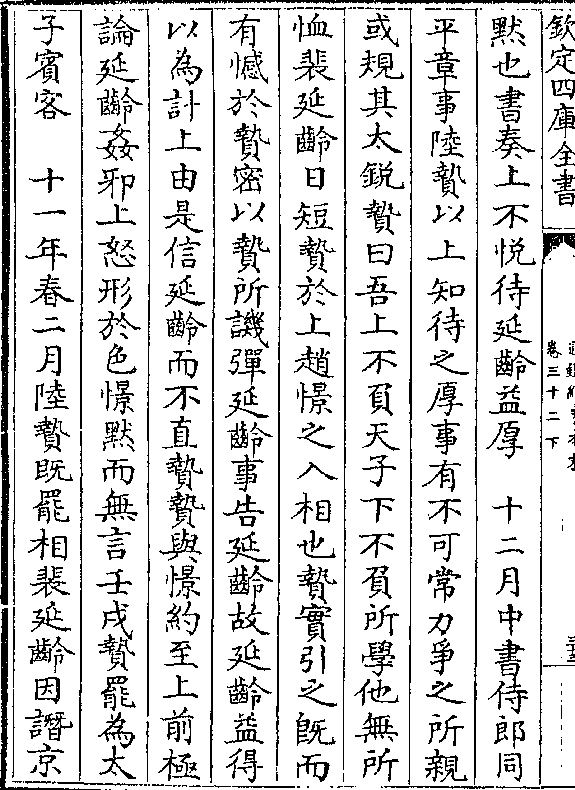 欽定四庫全書
卷三十二下
黙也書奏上不悦待延齡益厚　十二月中書侍郎同
平章事陸贄以上知待之厚事有不可常力爭之所親
或規其太鋭贄曰吾上不負天子下不負所學他無所
恤裴延齡日短贄於上趙憬之入相也贄實引之旣而
有憾於贄密以贄所譏彈延齡事告延齡故延齡益得
以為計上由是信延齡而不直贄贄與憬約至上前極
論延齡姦邪上怒形於色憬黙而無言壬戌贄罷為太
子賓客　十一年春二月陸贄既罷相裴延齡因譖京